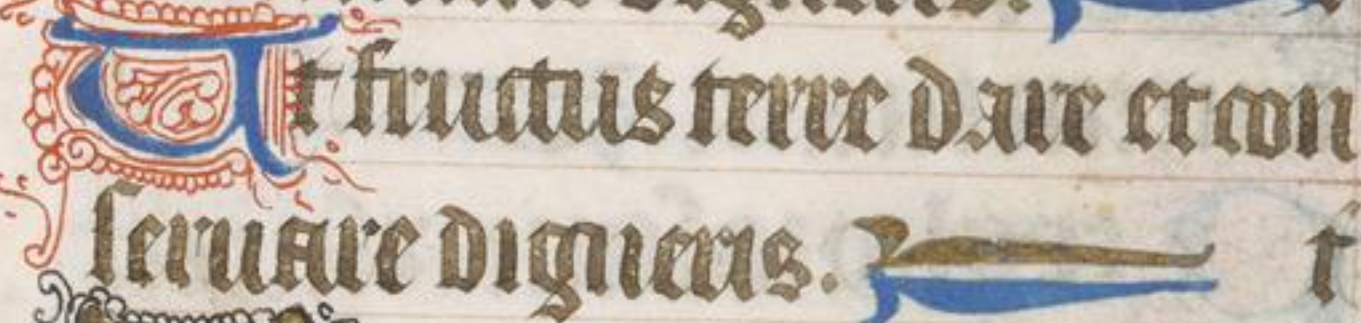 digneris.
Ut fructus terre dare et con
seruare digneris. t